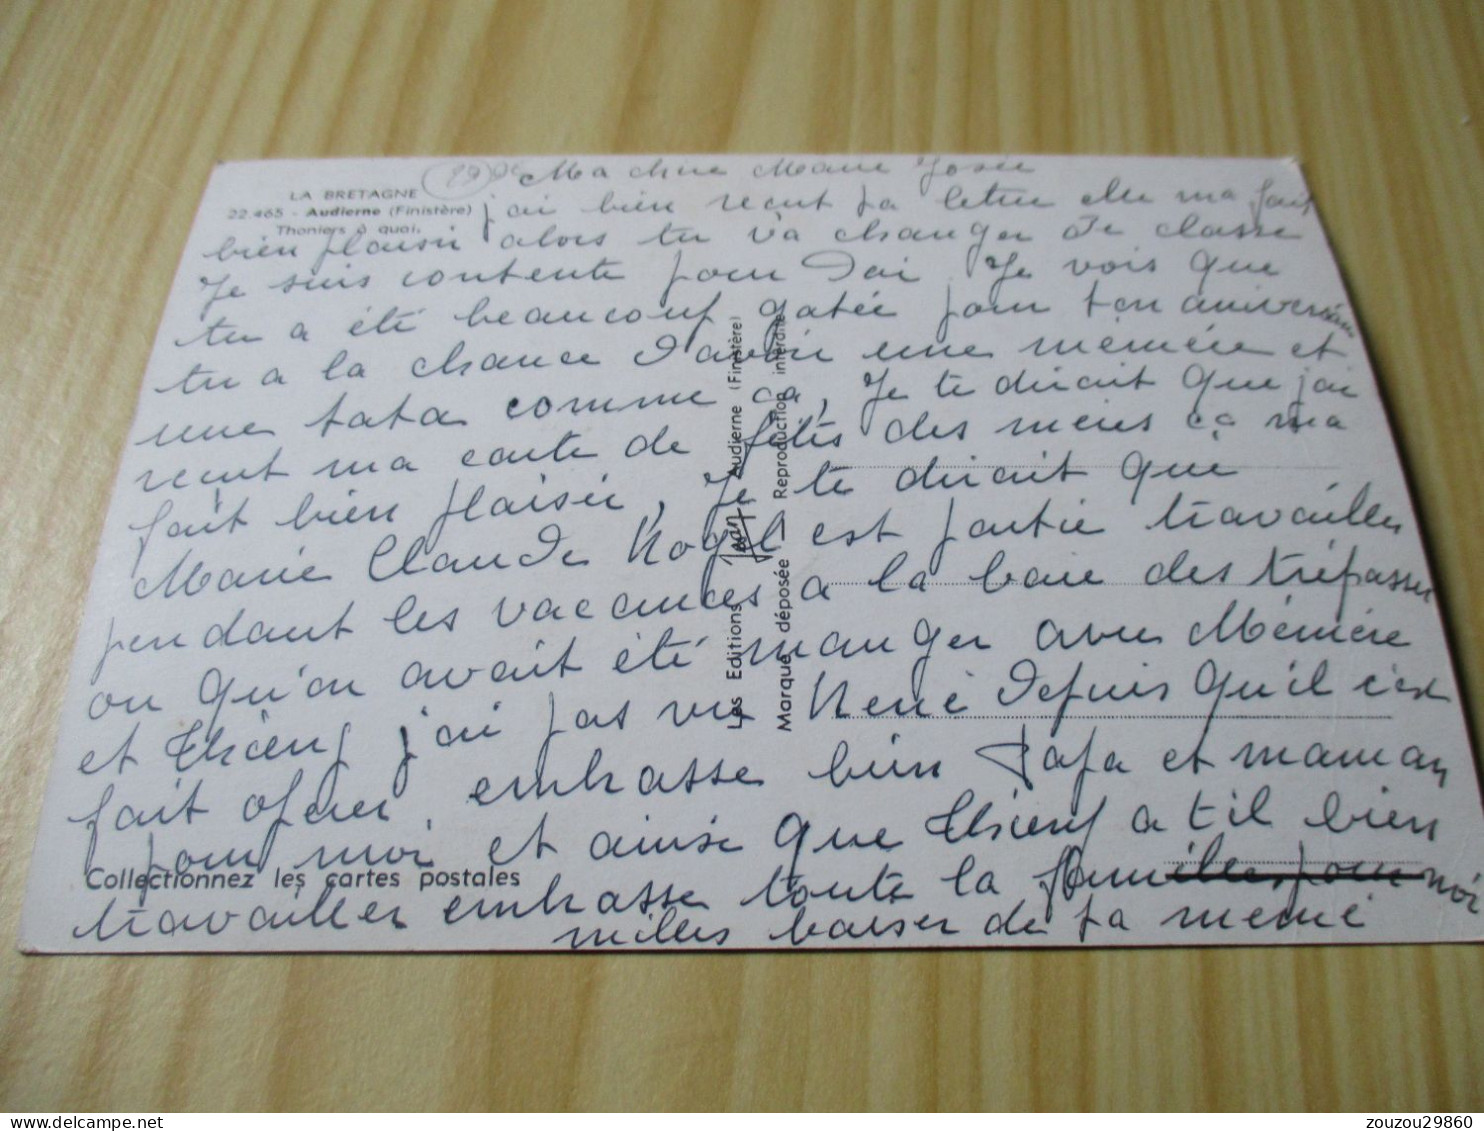 LA BRETAGNE
22 465 - Audierne (Finistère)
Thoniers à quai.
29
Ma chère Marie Josée
j'ai bien recut ta lettre elle ma fait
bien plaisir alors tu va changer de classe
Je suis contente pour Toi, Je vois que
tu a été beaucoup gatée pour ton aniversaire
tu a la chance d'avoir une mémère et
une tata comme ça, Je te dirait que j'ai
recut ma carte de fêtes des mères ça ma
fait bien plaisir, Je te dirait que
Marie Claude est partie travailler
pendant les vacances a la baie des trépassés
ou qu'on avait été manger avec Mémère
et j'ai pas vu René depuis qu'il c'est
fait opérer, embrasse bien Papa et maman
pour moi et ainsi que a t il bien
travailler embrasse toute la famille pour moi
milles baiser de ta mémé
Les Editions Jean Audierne (Finistère)
Marque déposée — Reproduction interdite
Collectionnez les cartes postales
zouzou29860